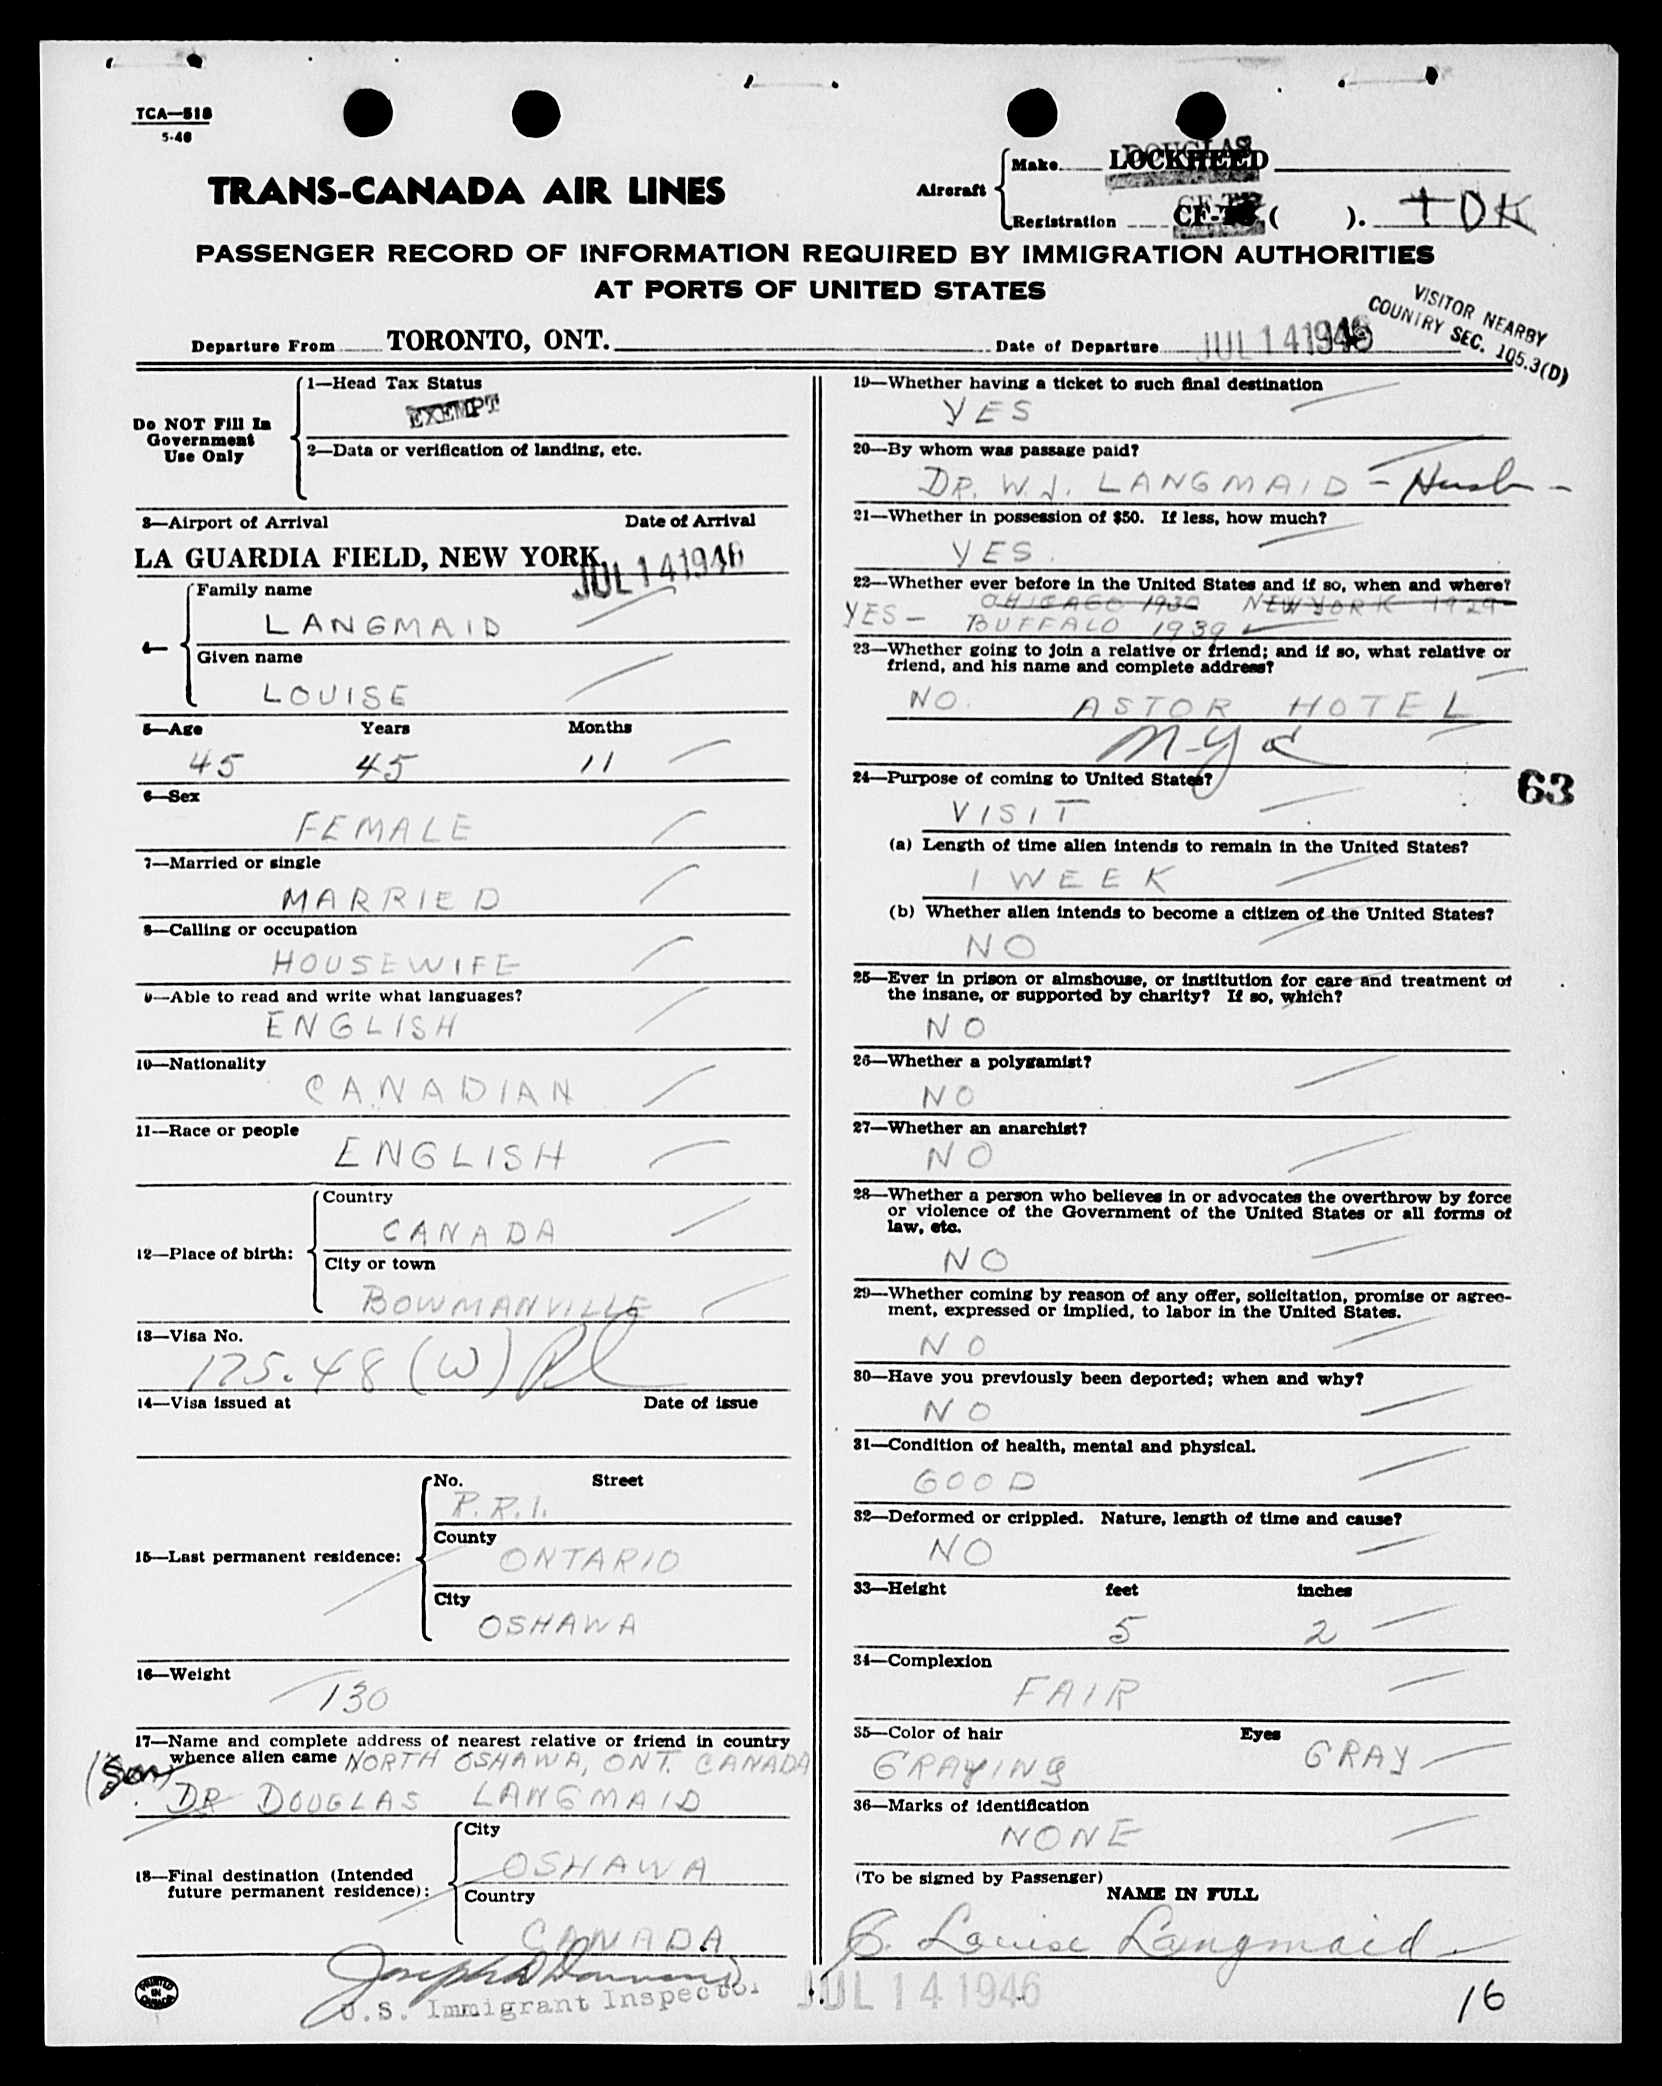 TCA—518
5-46
DOUGLAS
Aircraft Make LOCKHEED
TRANS-CANADA AIR LINES
Registration CF-T ( ). TDK
PASSENGER RECORD OF INFORMATION REQUIRED BY IMMIGRATION AUTHORITIES
AT PORTS OF UNITED STATES
VISITOR NEARBY
COUNTRY SEC. 105.3(D)
Departure From TORONTO, ONT. Date of Departure JUL 14 1946
Do NOT Fill In
Government
Use Only
1—Head Tax Status
EXEMPT
2—Data or verification of landing, etc.
3—Airport of Arrival Date of Arrival
LA GUARDIA FIELD, NEW YORK JUL 14 1946
4— Family name
LANGMAID
Given name
LOUISE
5—Age Years Months
45 45 11
6—Sex
FEMALE
7—Married or single
MARRIED
8—Calling or occupation
HOUSEWIFE
9—Able to read and write what languages?
ENGLISH
10—Nationality
CANADIAN
11—Race or people
ENGLISH
12—Place of birth:
Country
CANADA
City or town
BOWMANVILLE
13—Visa No.
175.48 (W)
14—Visa issued at Date of issue
15—Last permanent residence:
No. Street
R.R.1.
County
ONTARIO
City
OSHAWA
16—Weight
130
17—Name and complete address of nearest relative or friend in country
whence alien came NORTH OSHAWA, ONT. CANADA
(Son) DR DOUGLAS LANGMAID
18—Final destination (Intended
future permanent residence):
City
OSHAWA
Country
CANADA
U.S. Immigrant Inspector
PRINTED IN CANADA
19—Whether having a ticket to such final destination
YES
20—By whom was passage paid?
DR. W.J. LANGMAID - Husb -
21—Whether in possession of $50. If less, how much?
YES.
22—Whether ever before in the United States and if so, when and where?
CHICAGO 1930 NEW YORK 1929
YES - BUFFALO 1939
23—Whether going to join a relative or friend; and if so, what relative or
friend, and his name and complete address?
NO. ASTOR HOTEL
N-Y C
24—Purpose of coming to United States?
VISIT
63
(a) Length of time alien intends to remain in the United States?
1 WEEK
(b) Whether alien intends to become a citizen of the United States?
NO
25—Ever in prison or almshouse, or institution for care and treatment of
the insane, or supported by charity? If so, which?
NO
26—Whether a polygamist?
NO
27—Whether an anarchist?
NO
28—Whether a person who believes in or advocates the overthrow by force
or violence of the Government of the United States or all forms of
law, etc.
NO
29—Whether coming by reason of any offer, solicitation, promise or agree-
ment, expressed or implied, to labor in the United States.
NO
30—Have you previously been deported; when and why?
NO
31—Condition of health, mental and physical.
GOOD
32—Deformed or crippled. Nature, length of time and cause?
NO
33—Height feet inches
5 2
34—Complexion
FAIR
35—Color of hair Eyes
GRAYING GRAY
36—Marks of identification
NONE
(To be signed by Passenger)
NAME IN FULL
Louise Langmaid
JUL 14 1946
16